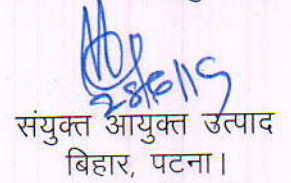 28/6/19
संयुक्त आयुक्त उत्पाद
बिहार, पटना।